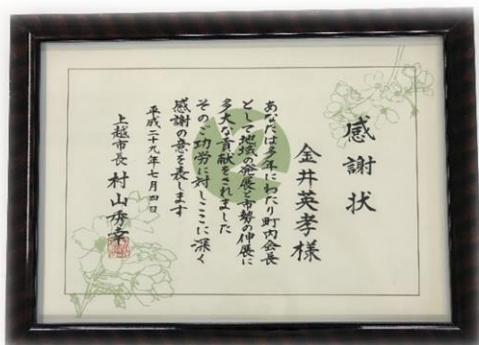 感謝状
金井英孝様
あなたは多年にわたり町内会長
として地域の発展と市勢の伸展に
多大な貢献をされました
そのご功労に対しここに深く
感謝の意を表します
平成二十九年七月四日
上越市長 村山秀幸